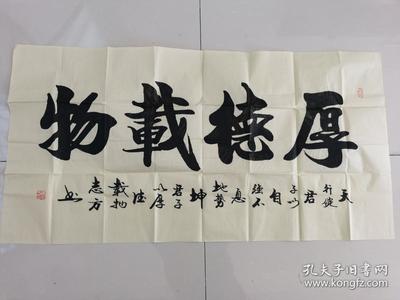 厚德載物
天行健君子以自强不息地势坤君子以厚德载物
志方书
孔夫子旧书网